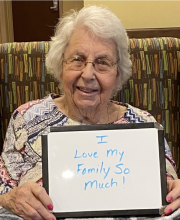 I
Love My
Family So
Much!